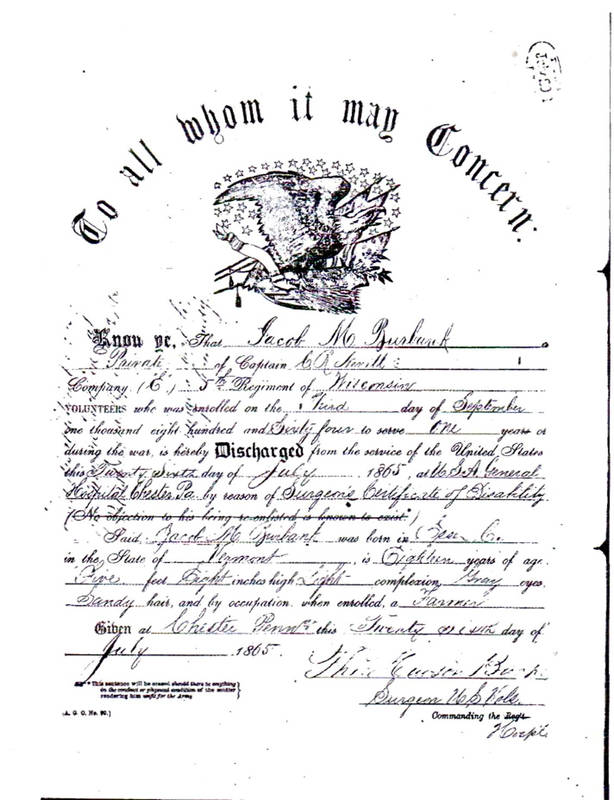 To all whom it may Concern:
Know ye, That Jacob M Burbank a
Private of Captain C R Nevitt
Company (E,) 5th Regiment of Wisconsin
VOLUNTEERS who was enrolled on the Third day of September
one thousand eight hundred and Sixty four to serve One years or
during the war, is hereby Discharged from the service of the United States
this Twenty Sixth day of July, 1865, at U.S.A. General
Hospital Chester Pa. by reason of Surgeon's Certificate of Disability
(No objection to his being re-enlisted is known to exist.*)
Said Jacob M Burbank was born in Essex C.
in the State of Vermont, is Eighteen years of age,
Five feet Eight inches high Light complexion, Gray eyes,
Sandy hair, and by occupation, when enrolled, a Farmer
Given at Chester Penna this Twenty sixth day of
July 1865.
* This sentence will be erased should there be anything
in the conduct or physical condition of the soldier
rendering him unfit for the Army.
[A. G. O. No. 99.]
Surgeon U S Vols.
Commanding the Reg't
Hospl